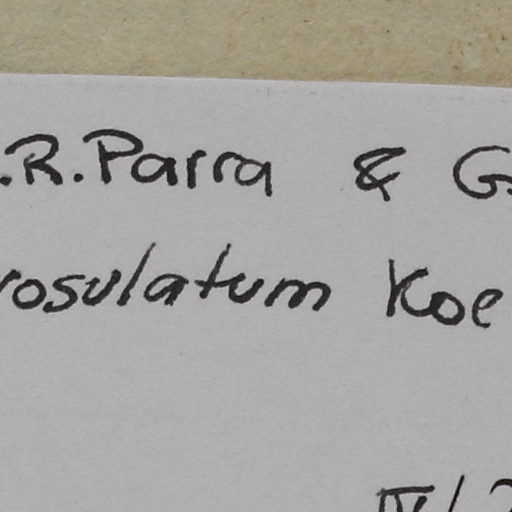 .R.Parra & G.
rosulatum Koe
IV/2